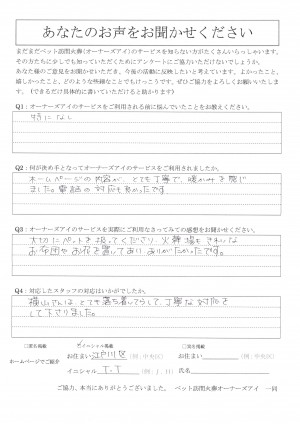 あなたのお声をお聞かせください
まだまだペット訪問火葬(オーナーズアイ)のサービスを知らない方がたくさんいらっしゃいます。
その方たちに少しでも知っていただくためにアンケートにご協力いただけないでしょうか。
あなた様のご意見をお聞かせいただき、今後の活動に反映したいと考えています。よかったこと、
嬉しかったこと、どのような些細なことでもけっこうです。ぜひご協力をよろしくお願いいたしま
す。(できるだけ具体的に書いていただけると助かります)
Q1：オーナーズアイのサービスをご利用される前に悩んでいたことをお教えください。
特になし
Q2：何が決め手となってオーナーズアイのサービスをご利用されましたか。
ホームページの内容が、とても丁寧で、暖かみを感じ
ました。電話の対応も良かったです。
Q3：オーナーズアイのサービスを実際にご利用されてみての感想をお聞かせください
大切にペットを扱ってくださり、火葬場もきれいな
お布団やお花を置いてあり、ありがたかったです。
Q4：対応したスタッフの対応はいかがでしたか。
横山さんは、とても落ち着いてらして、丁寧な対応を
して下さりました。
□匿名掲載 ☑イニシャル掲載 □実名掲載
ホームページでご紹介
お住まい 江戸川区 (例：中央区) お住まい (例：中央区)
イニシャル T.T (例：I.H) 氏名
ご協力、本当にありがとうございました。 ペット訪問火葬オーナーズアイ 一同